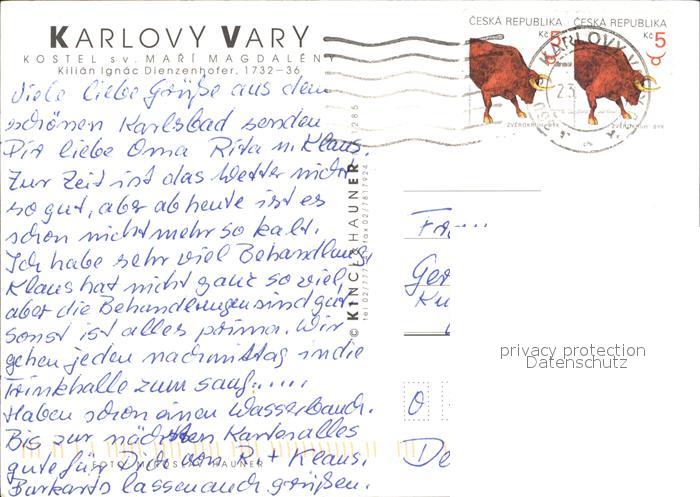 KARLOVY VARY
KOSTEL sv. MAŘÍ MAGDALÉNY
Kilián Ignác Dienzenhofer, 1732–36
Viele liebe Grüße aus dem
schönen Karlsbad senden
Dir liebe Oma Rita u. Klaus.
Zur Zeit ist das Wetter nicht
so gut, aber ab heute ist es
schon nicht mehr so kalt.
Ich habe sehr viel Behandlung
Klaus hat nicht ganz so viel,
aber die Behandlungen sind gut
sonst ist alles prima. Wir
gehen jeden nachmittag in die
Trinkhalle zum sauf......
Haben schon einen Wasserbauch.
Bis zur nächsten Karte alles
gute für Dich von R. + Klaus.
Burkarts lassen auch grüßen.
FOTO MIROSLAV HAUNER
© KINCL & HAUNER
ČESKÁ REPUBLIKA
Kč 5
ZVĚROKRUH - BÝK
ČESKÁ REPUBLIKA
Kč 5
ZVĚROKRUH - BÝK
KARLOVY V
Fr....
Ger
Ku
O
De
privacy protection
Datenschutz